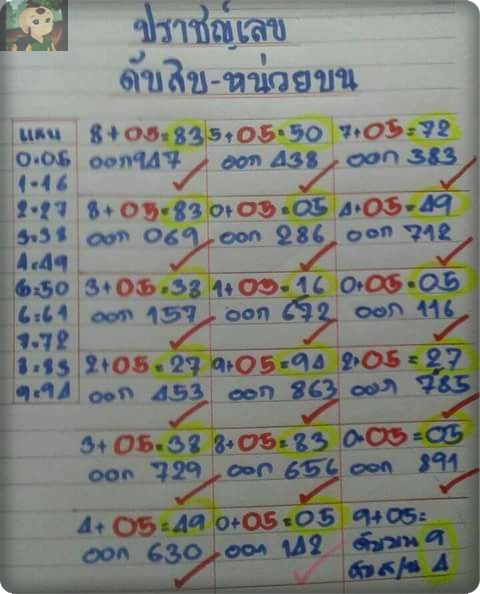 ปราชญ์เลข
ดับสิบ-หน่วยบน
แดน
0=05
1=16
2=27
3=38
4=49
5=50
6=61
7=72
8=83
9=94
8+05=83 5+05=50 7+05=72
ออก947 ออก 438 ออก 383
8+05=83 0+05=05 4+05=49
ออก 069 ออก 286 ออก 712
3+05=38 1+05=16 0+05=05
ออก 157 ออก 672 ออก 116
2+05=27 9+05=94 2+05=27
ออก 453 ออก 863 ออก 785
3+05=38 8+05=83 0+05=05
ออก 729 ออก 656 ออก 891
4+05=49 0+05=05 9+05=
ออก 630 ออก 142 ดับบน 9
ดับส/น 4